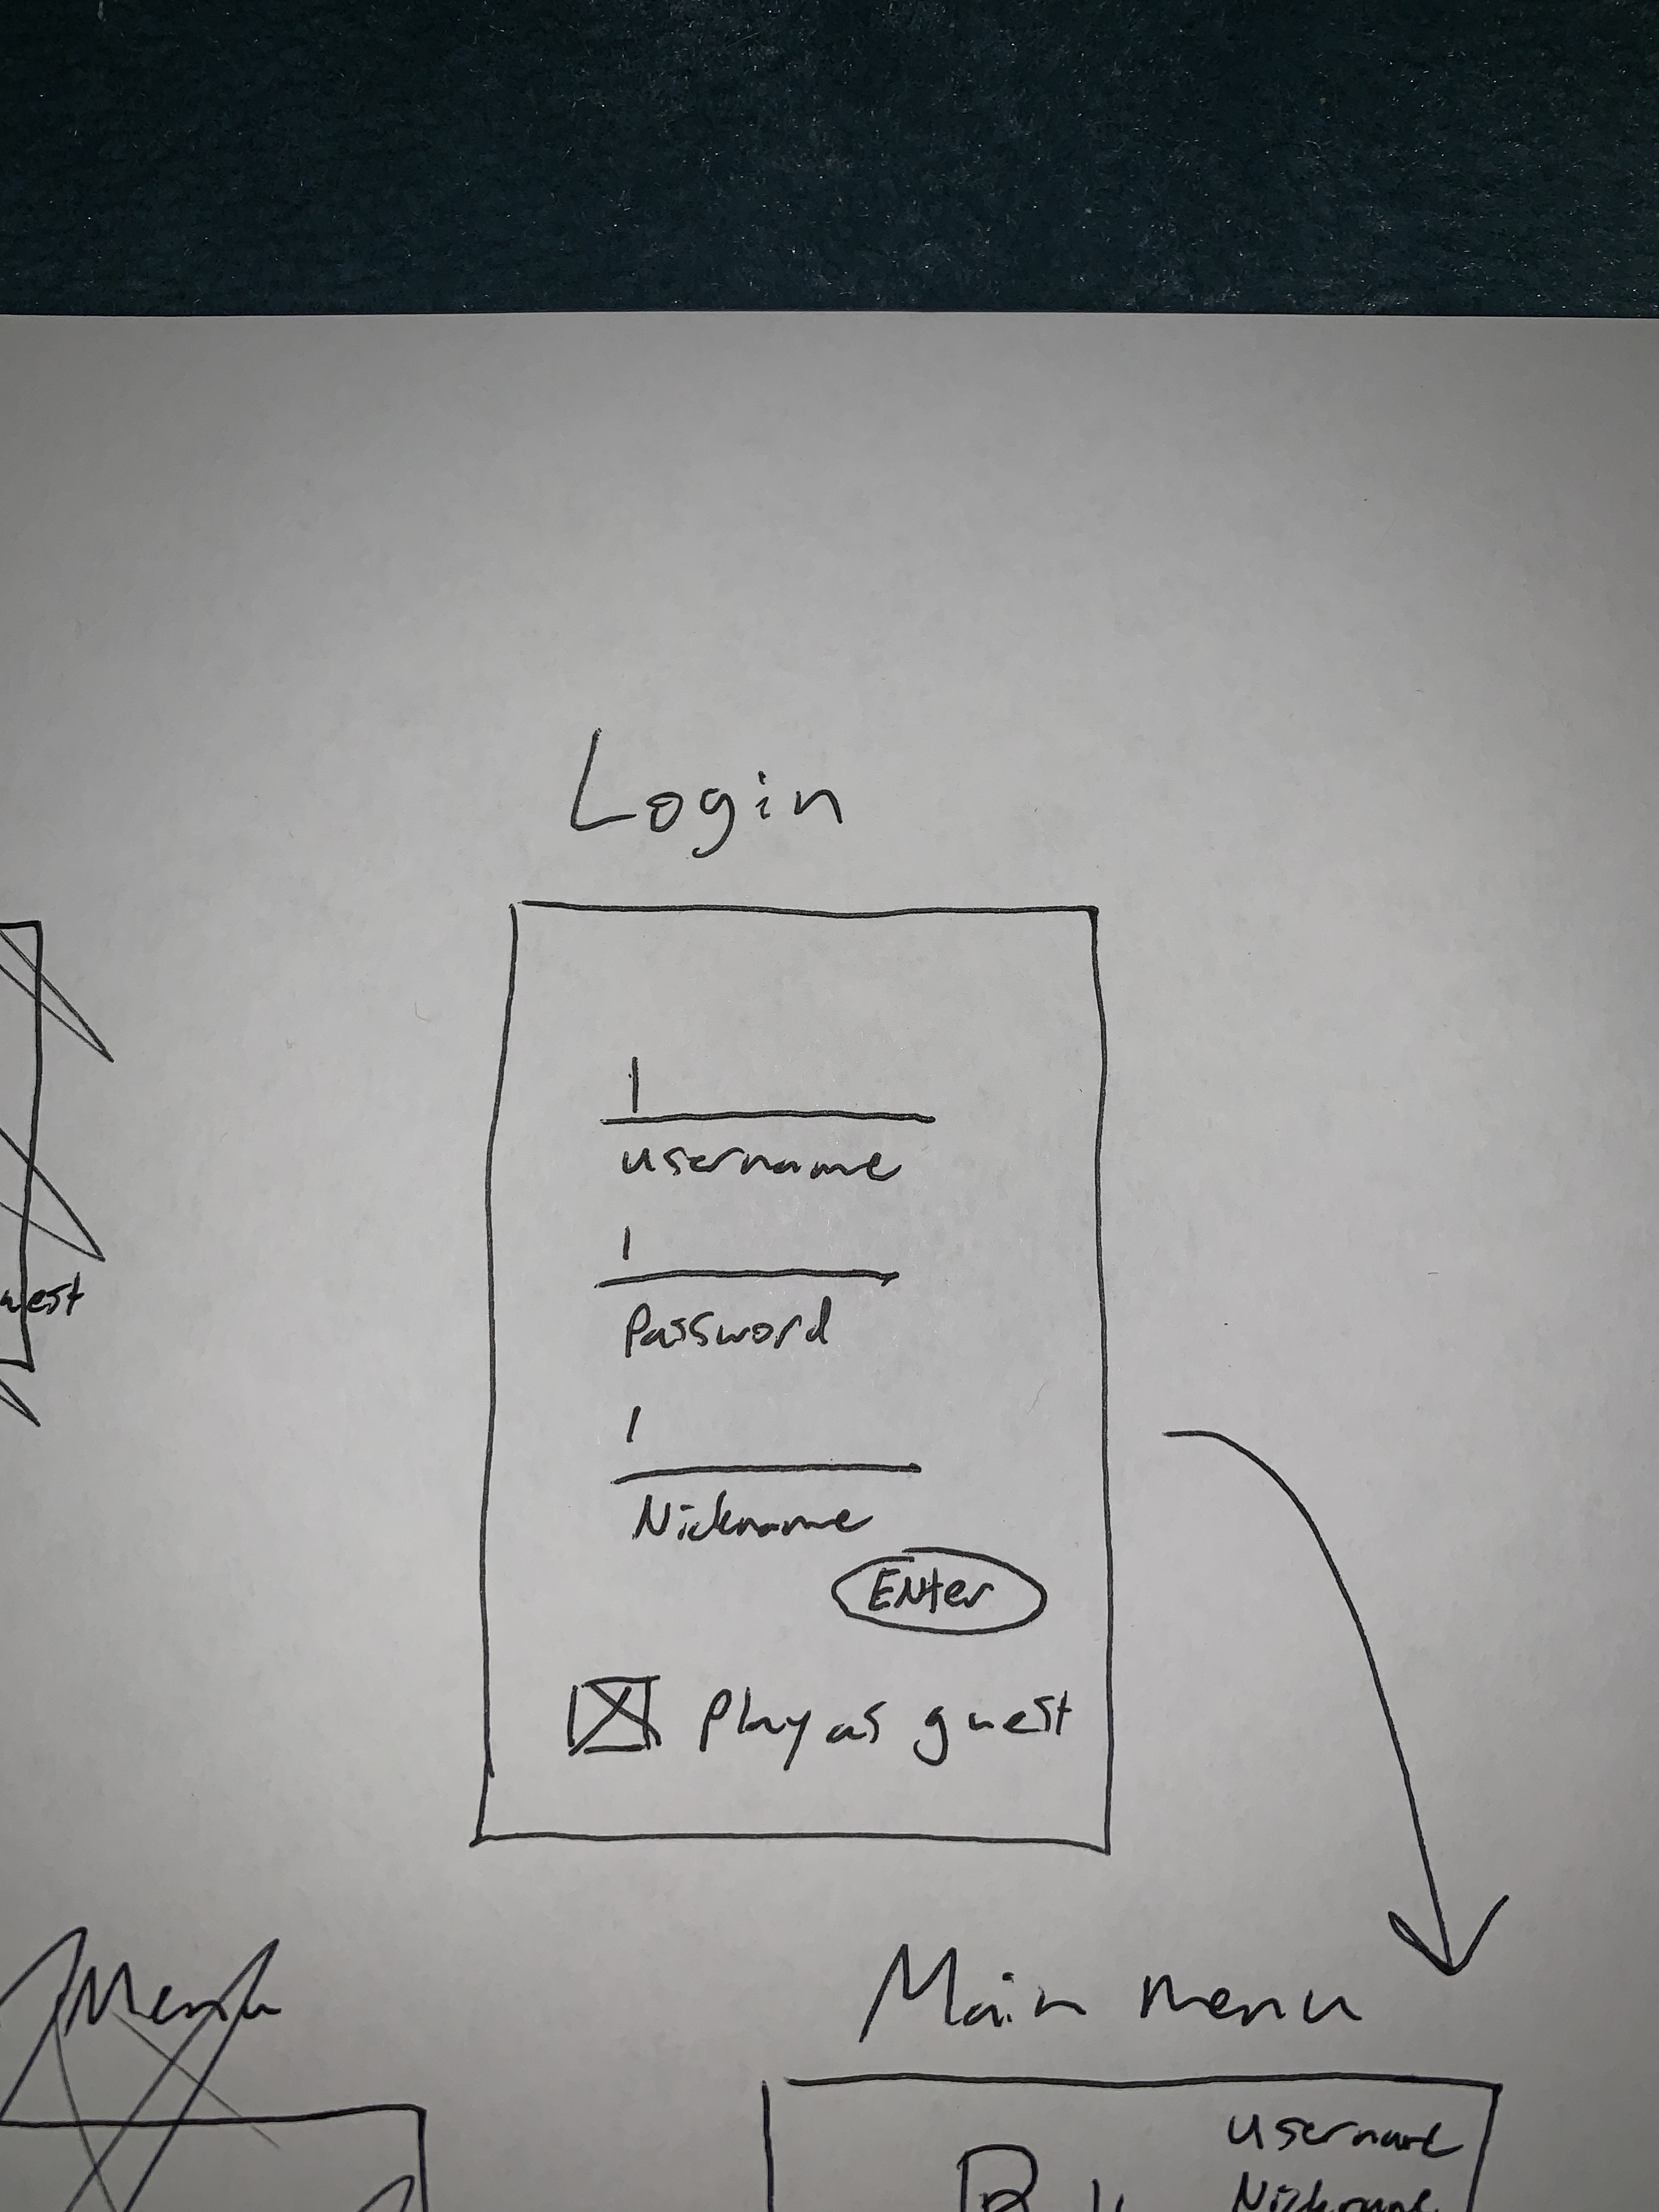 Login
username
Password
Nickname
Enter
Play as guest
Menu
Main menu
username
Nickname